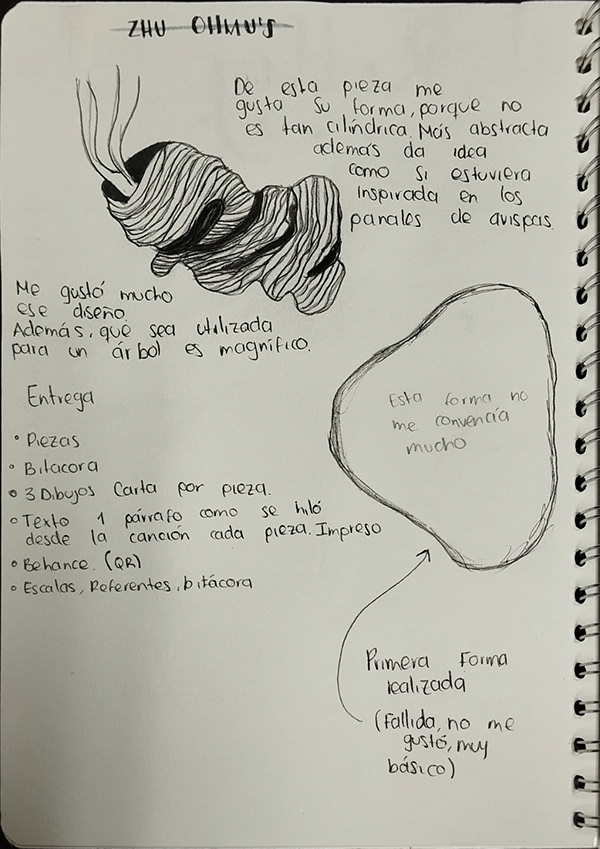 ZHU OHMU'S
De esta pieza me
gusta su forma, porque no
es tan cilíndrica. Más abstracta
además da idea
como si estuviera
inspirada en los
panales de avispas.
Me gustó mucho
ese diseño.
Además, que sea utilizada
para un árbol es magnífico.
Esta forma no
me convencía
mucho
Entrega
• Piezas
• Bitacora
• 3 Dibujos Carta por pieza.
• Texto 1 párrafo como se hiló
desde la canción cada pieza. Impreso
• Behance. (QR)
• Escalas, Referentes, bitácora
Primera Forma
realizada
(Fallida, no me
gustó, muy
básico)